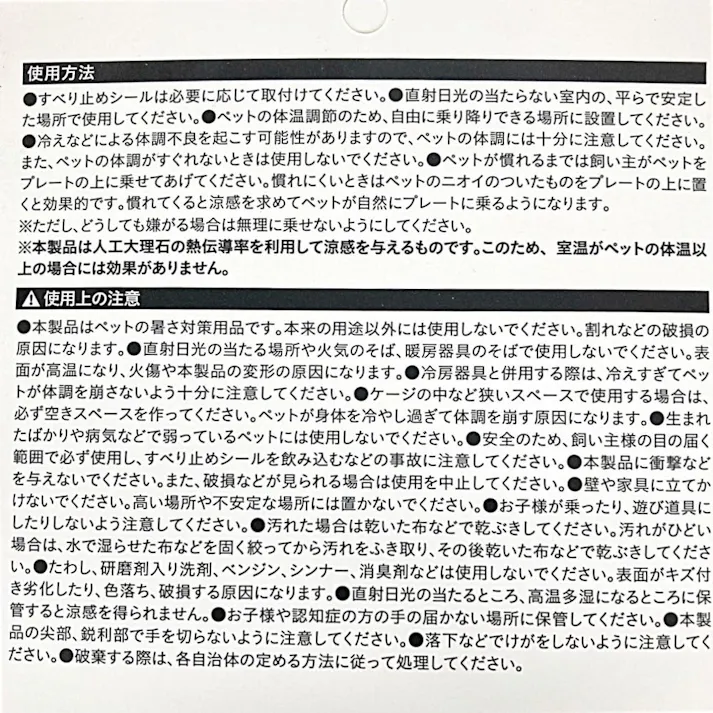 使用方法
●すべり止めシールは必要に応じて取付けてください。●直射日光の当たらない室内の、平らで安定し
た場所で使用してください。●ペットの体温調節のため、自由に乗り降りできる場所に設置してください。
●冷えなどによる体調不良を起こす可能性がありますので、ペットの体調には十分に注意してください。
また、ペットの体調がすぐれないときは使用しないでください。●ペットが慣れるまでは飼い主がペットを
プレートの上に乗せてあげてください。慣れにくいときはペットのニオイのついたものをプレートの上に置
くと効果的です。慣れてくると涼感を求めてペットが自然にプレートに乗るようになります。
※ただし、どうしても嫌がる場合は無理に乗せないようにしてください。
※本製品は人工大理石の熱伝導率を利用して涼感を与えるものです。このため、室温がペットの体温以
上の場合には効果がありません。
⚠使用上の注意
●本製品はペットの暑さ対策用品です。本来の用途以外には使用しないでください。割れなどの破損の
原因になります。●直射日光の当たる場所や火気のそば、暖房器具のそばで使用しないでください。表
面が高温になり、火傷や本製品の変形の原因になります。●冷房器具と併用する際は、冷えすぎてペッ
トが体調を崩さないよう十分に注意してください。●ケージの中など狭いスペースで使用する場合は、
必ず空きスペースを作ってください。ペットが身体を冷やし過ぎて体調を崩す原因になります。●生まれ
たばかりや病気などで弱っているペットには使用しないでください。●安全のため、飼い主様の目の届く
範囲で必ず使用し、すべり止めシールを飲み込むなどの事故に注意してください。●本製品に衝撃など
を与えないでください。また、破損などが見られる場合は使用を中止してください。●壁や家具に立てか
けないでください。高い場所や不安定な場所には置かないでください。●お子様が乗ったり、遊び道具に
したりしないよう注意してください。●汚れた場合は乾いた布などで乾ぶきしてください。汚れがひどい
場合は、水で湿らせた布などを固く絞ってから汚れをふき取り、その後乾いた布などで乾ぶきしてくださ
い。●たわし、研磨剤入り洗剤、ベンジン、シンナー、消臭剤などは使用しないでください。表面がキズ付
き劣化したり、色落ち、破損する原因になります。●直射日光の当たるところ、高温多湿になるところに保
管すると涼感を得られません。●お子様や認知症の方の手の届かない場所に保管してください。●本製
品の尖部、鋭利部で手を切らないように注意してください。●落下などでけがをしないように注意してく
ださい。●破棄する際は、各自治体の定める方法に従って処理してください。